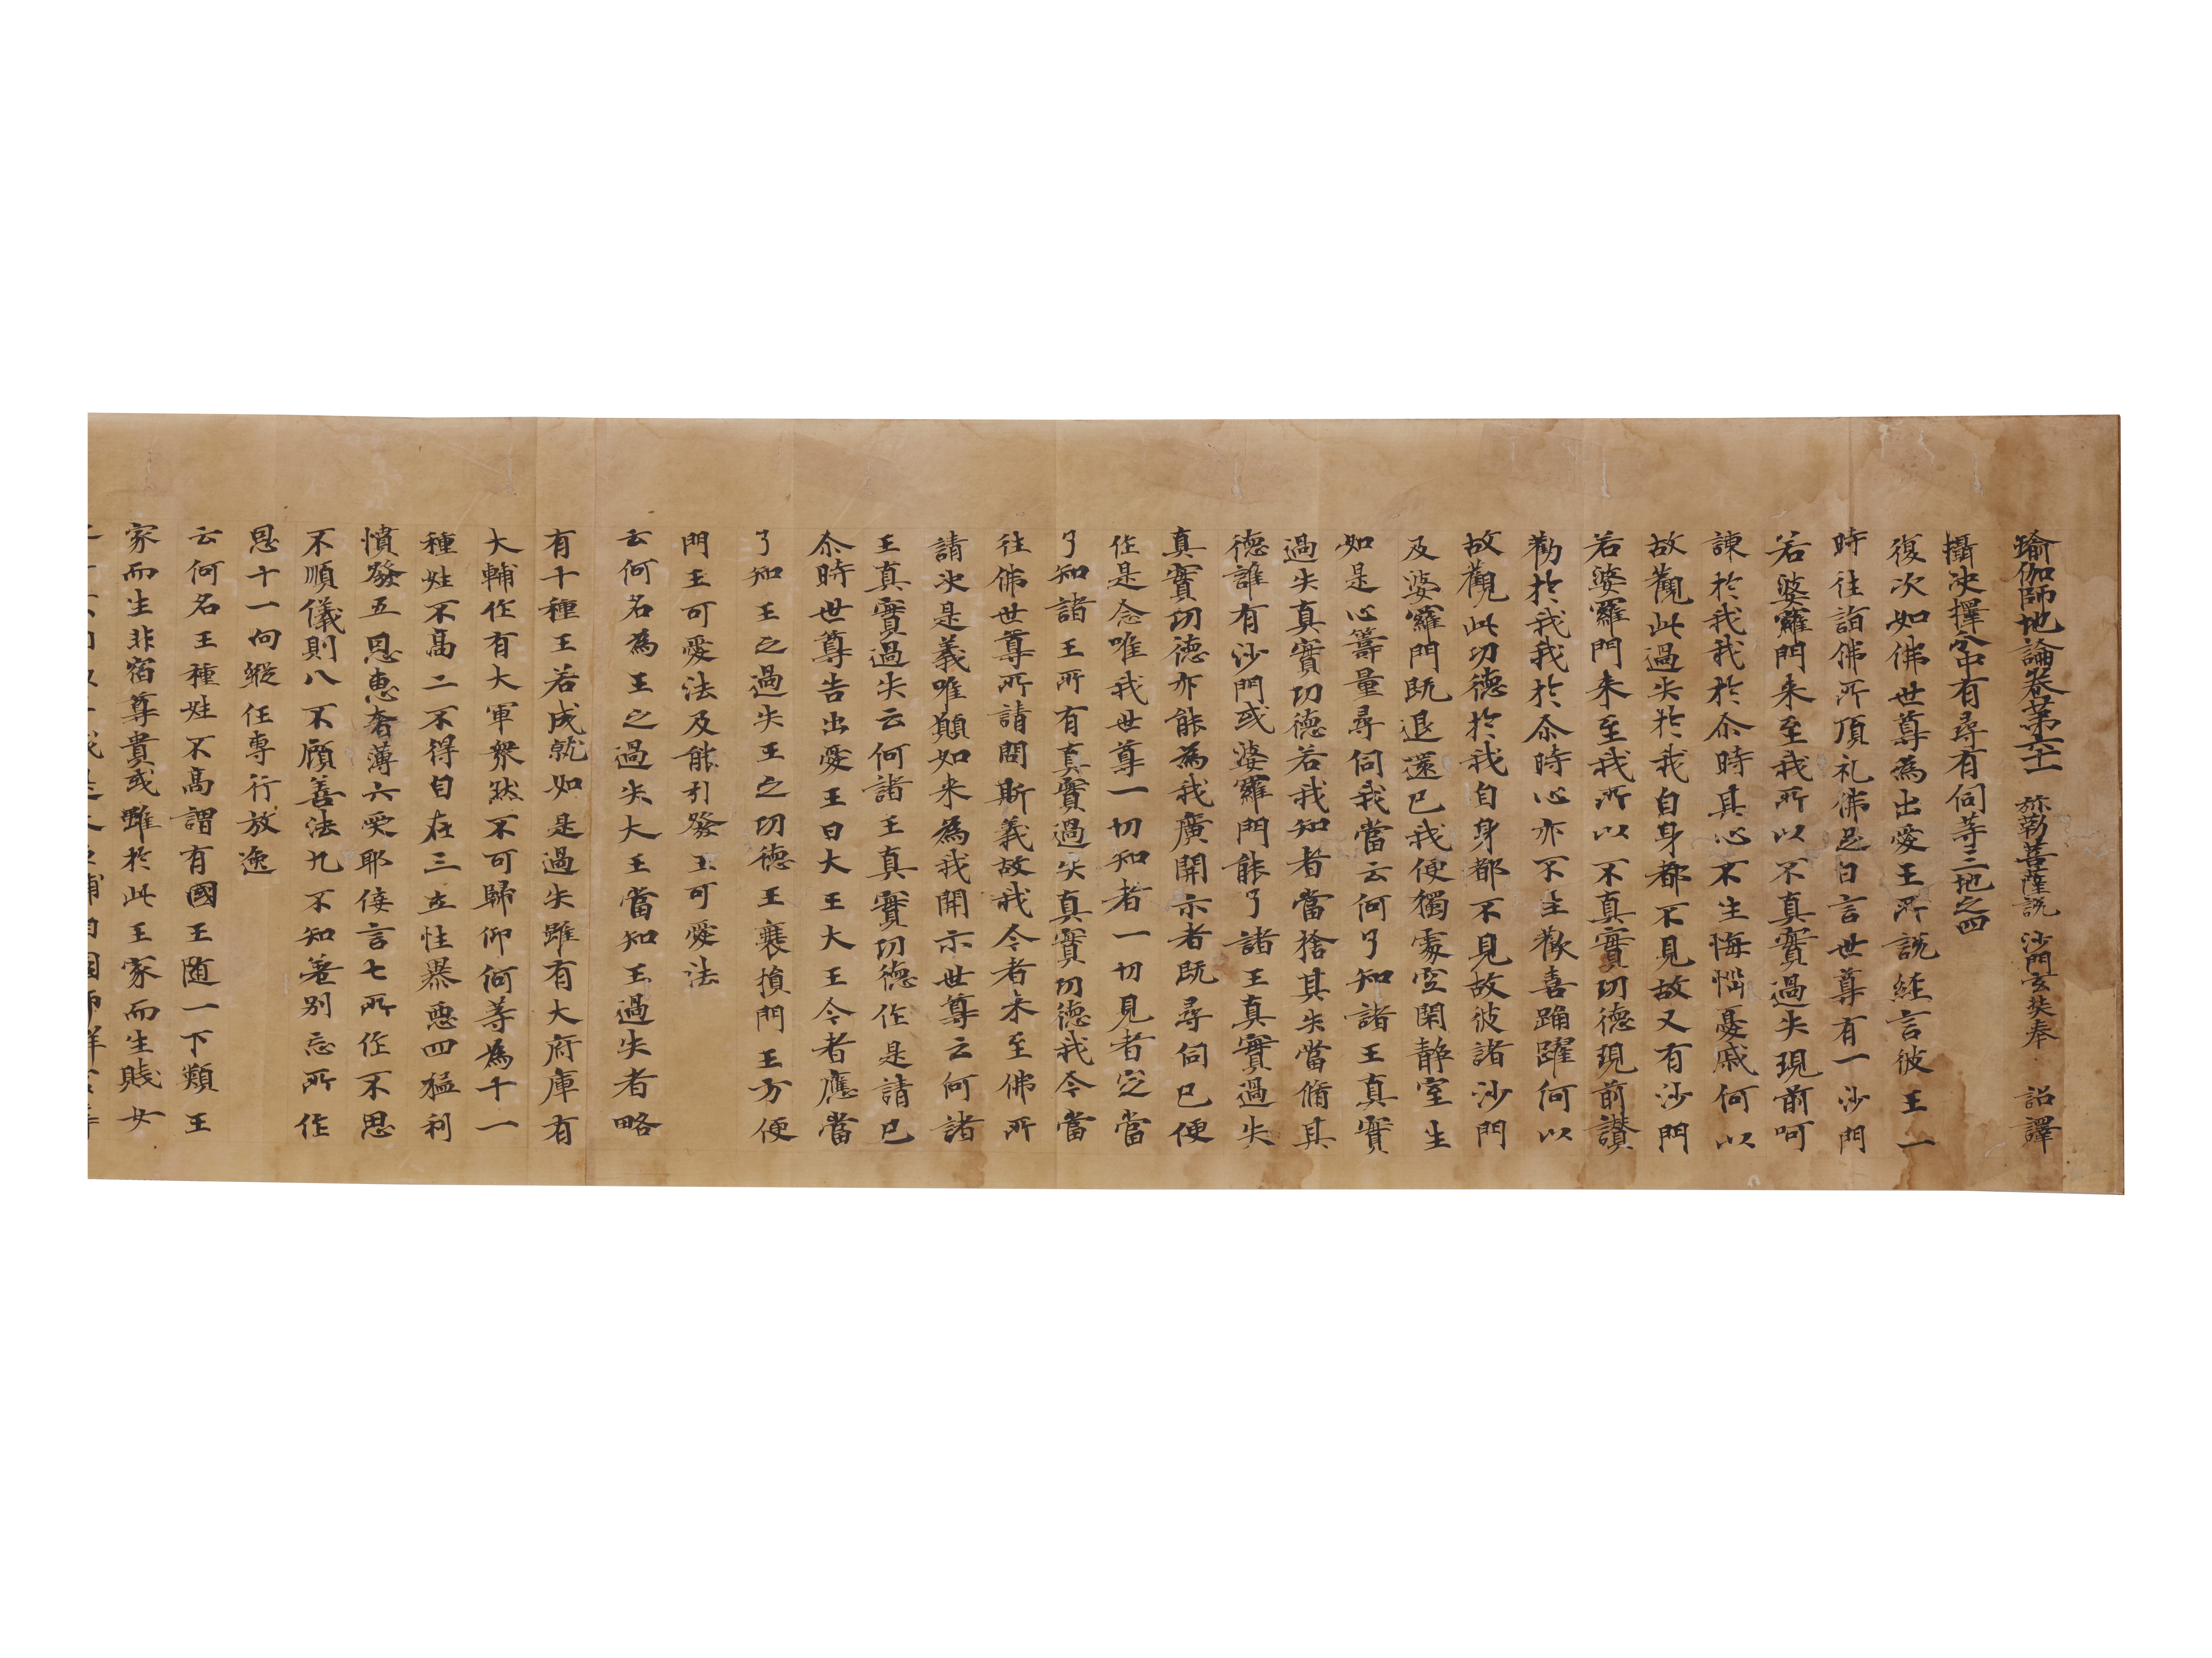 瑜伽師地論卷苐六十一　弥勒菩薩說　沙門玄奘奉　詔譯
攝决擇分中有尋有伺等三地之四
復次如佛世尊為出愛王所說經言彼王一
時往詣佛所頂礼佛足白言世尊有一沙門
若婆羅門来至我所以不真實過失現前呵
諫於我我於尒時其心不生悔惱憂慼何以
故觀此過失於我自身都不見故又有沙門
若婆羅門来至我所以不真實功德現前讃
勸於我我於尒時心亦不生歡喜踊躍何以
故觀此功德於我自身都不見故彼諸沙門
及婆羅門既退還已我便獨處空閑靜室生
如是心籌量尋伺我當云何了知諸王真實
過失真實功德若我知者當捨其失當脩其
德誰有沙門或婆羅門能了諸王真實過失
真實功德亦能為我廣開示者既尋伺已便
作是念唯我世尊一切知者一切見者定當
了知諸王所有真實過失真實功德我今當
往佛世尊所請問斯義故我今者来至佛所
請决是義唯願如来為我開示世尊云何諸
王真實過失云何諸王真實功德作是請已
尒時世尊告出愛王曰大王大王今者應當
了知王之過失王之功德王衰損門王方便
門王可愛法及能引發王可愛法
云何名為王之過失大王當知王過失者略
有十種王若成就如是過失雖有大府庫有
大輔佐有大軍衆然不可歸仰何等為十一
種姓不高二不得自在三立性暴惡四猛利
憤發五恩惠奢薄六受耶佞言七所作不思
不順儀則八不顧善法九不知差别忘所作
恩十一向縱任專行放逸
云何名王種姓不高謂有國王随一下類王
家而生非宿尊貴或雖於此王家而生賤女